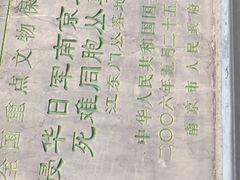 全国重点文物保
侵华日军南京
死难同胞丛
江东门丛葬地
中华人民共和国国
二〇〇六年五月二十五
南京市人民政府